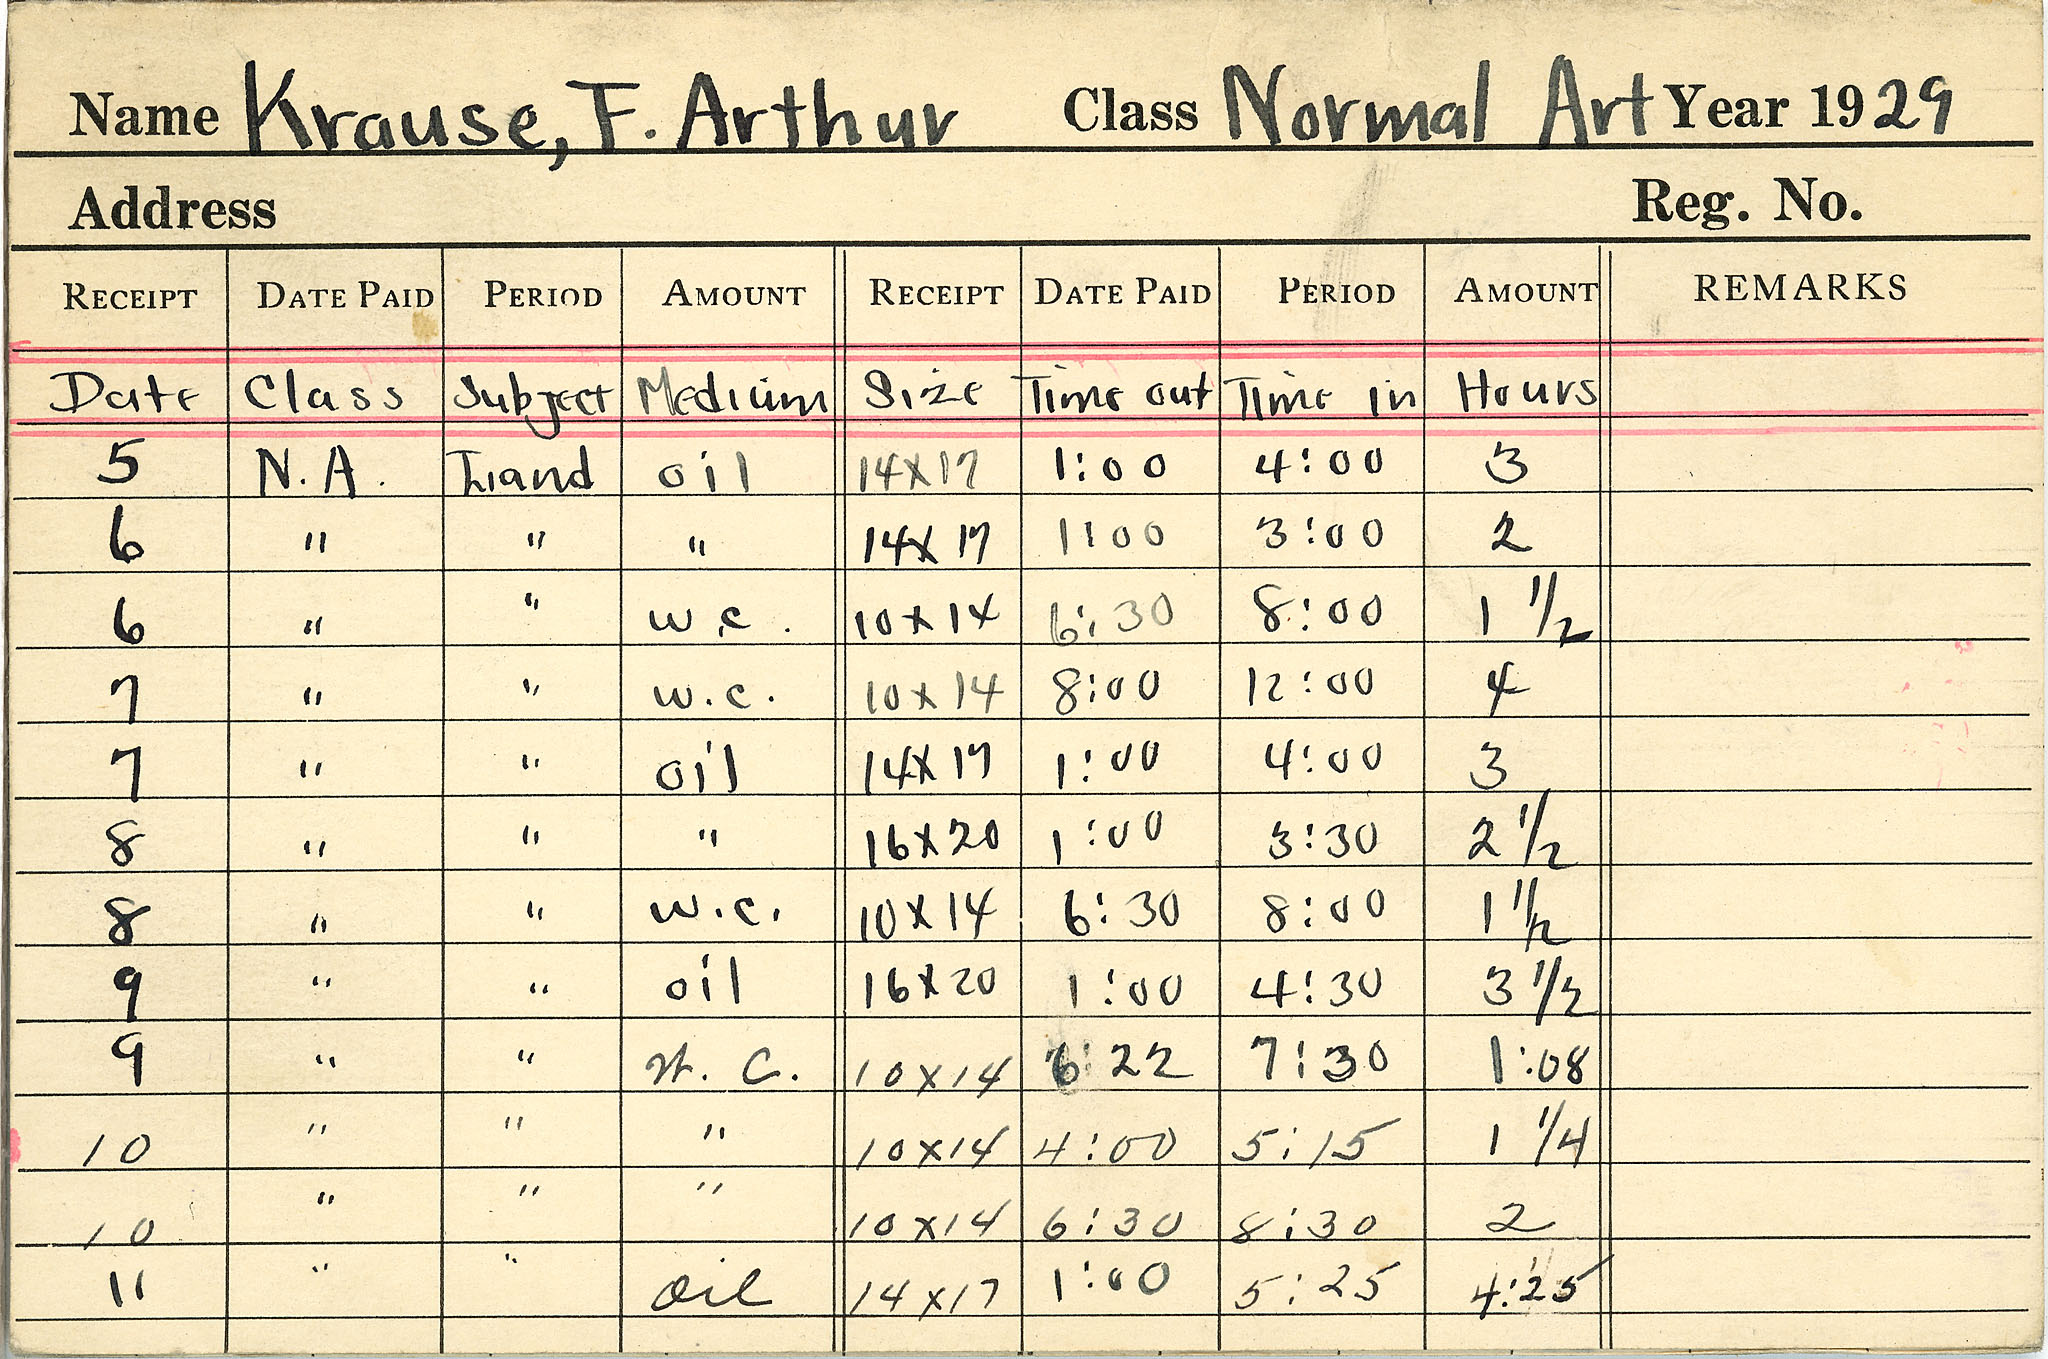 Name Krause, F. Arthur Class Normal Art Year 1929
Address Reg. No.
RECEIPT DATE PAID PERIOD AMOUNT RECEIPT DATE PAID PERIOD AMOUNT REMARKS
Date Class Subject Medium Size Time out Time in Hours
5 N.A. Land oil 14x17 1:00 4:00 3
6 " " " 14x17 1:00 3:00 2
6 " " w.c. 10x14 6:30 8:00 1 1/2
7 " " w.c. 10x14 8:00 12:00 4
7 " " oil 14x17 1:00 4:00 3
8 " " " 16x20 1:00 3:30 2 1/2
8 " " w.c. 10x14 6:30 8:00 1 1/2
9 " " oil 16x20 1:00 4:30 3 1/2
9 " " W.C. 10x14 6:22 7:30 1:08
10 " " " 10x14 4:00 5:15 1 1/4
10 " " " 10x14 6:30 8:30 2
11 " " oil 14x17 1:00 5:25 4:25